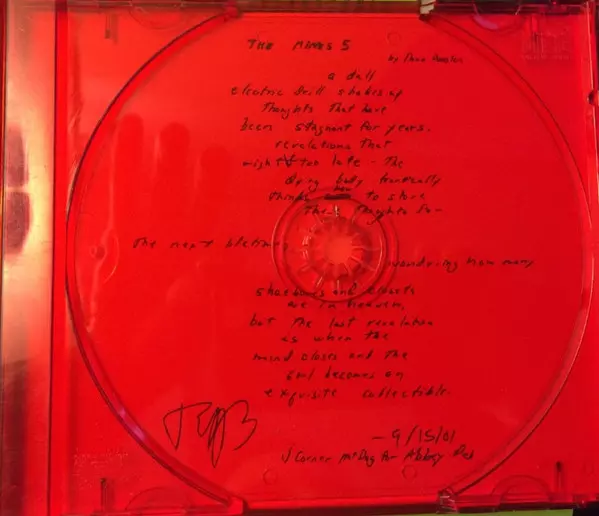 THE MINES 5
by
a dull
electric drill shakes up
Thoughts That have
been stagnant for years.
revelations that
might too late - The
dying body frantically
Thinks how to store
These Thoughts for -
The next lifetime
wondering how many
shoeboxes and closets
are in heaven,
but The last revelation
is when the
mind closes and The
soul becomes an
exquisite collectible.
- 9/15/01
J Corner for Abbey Pub